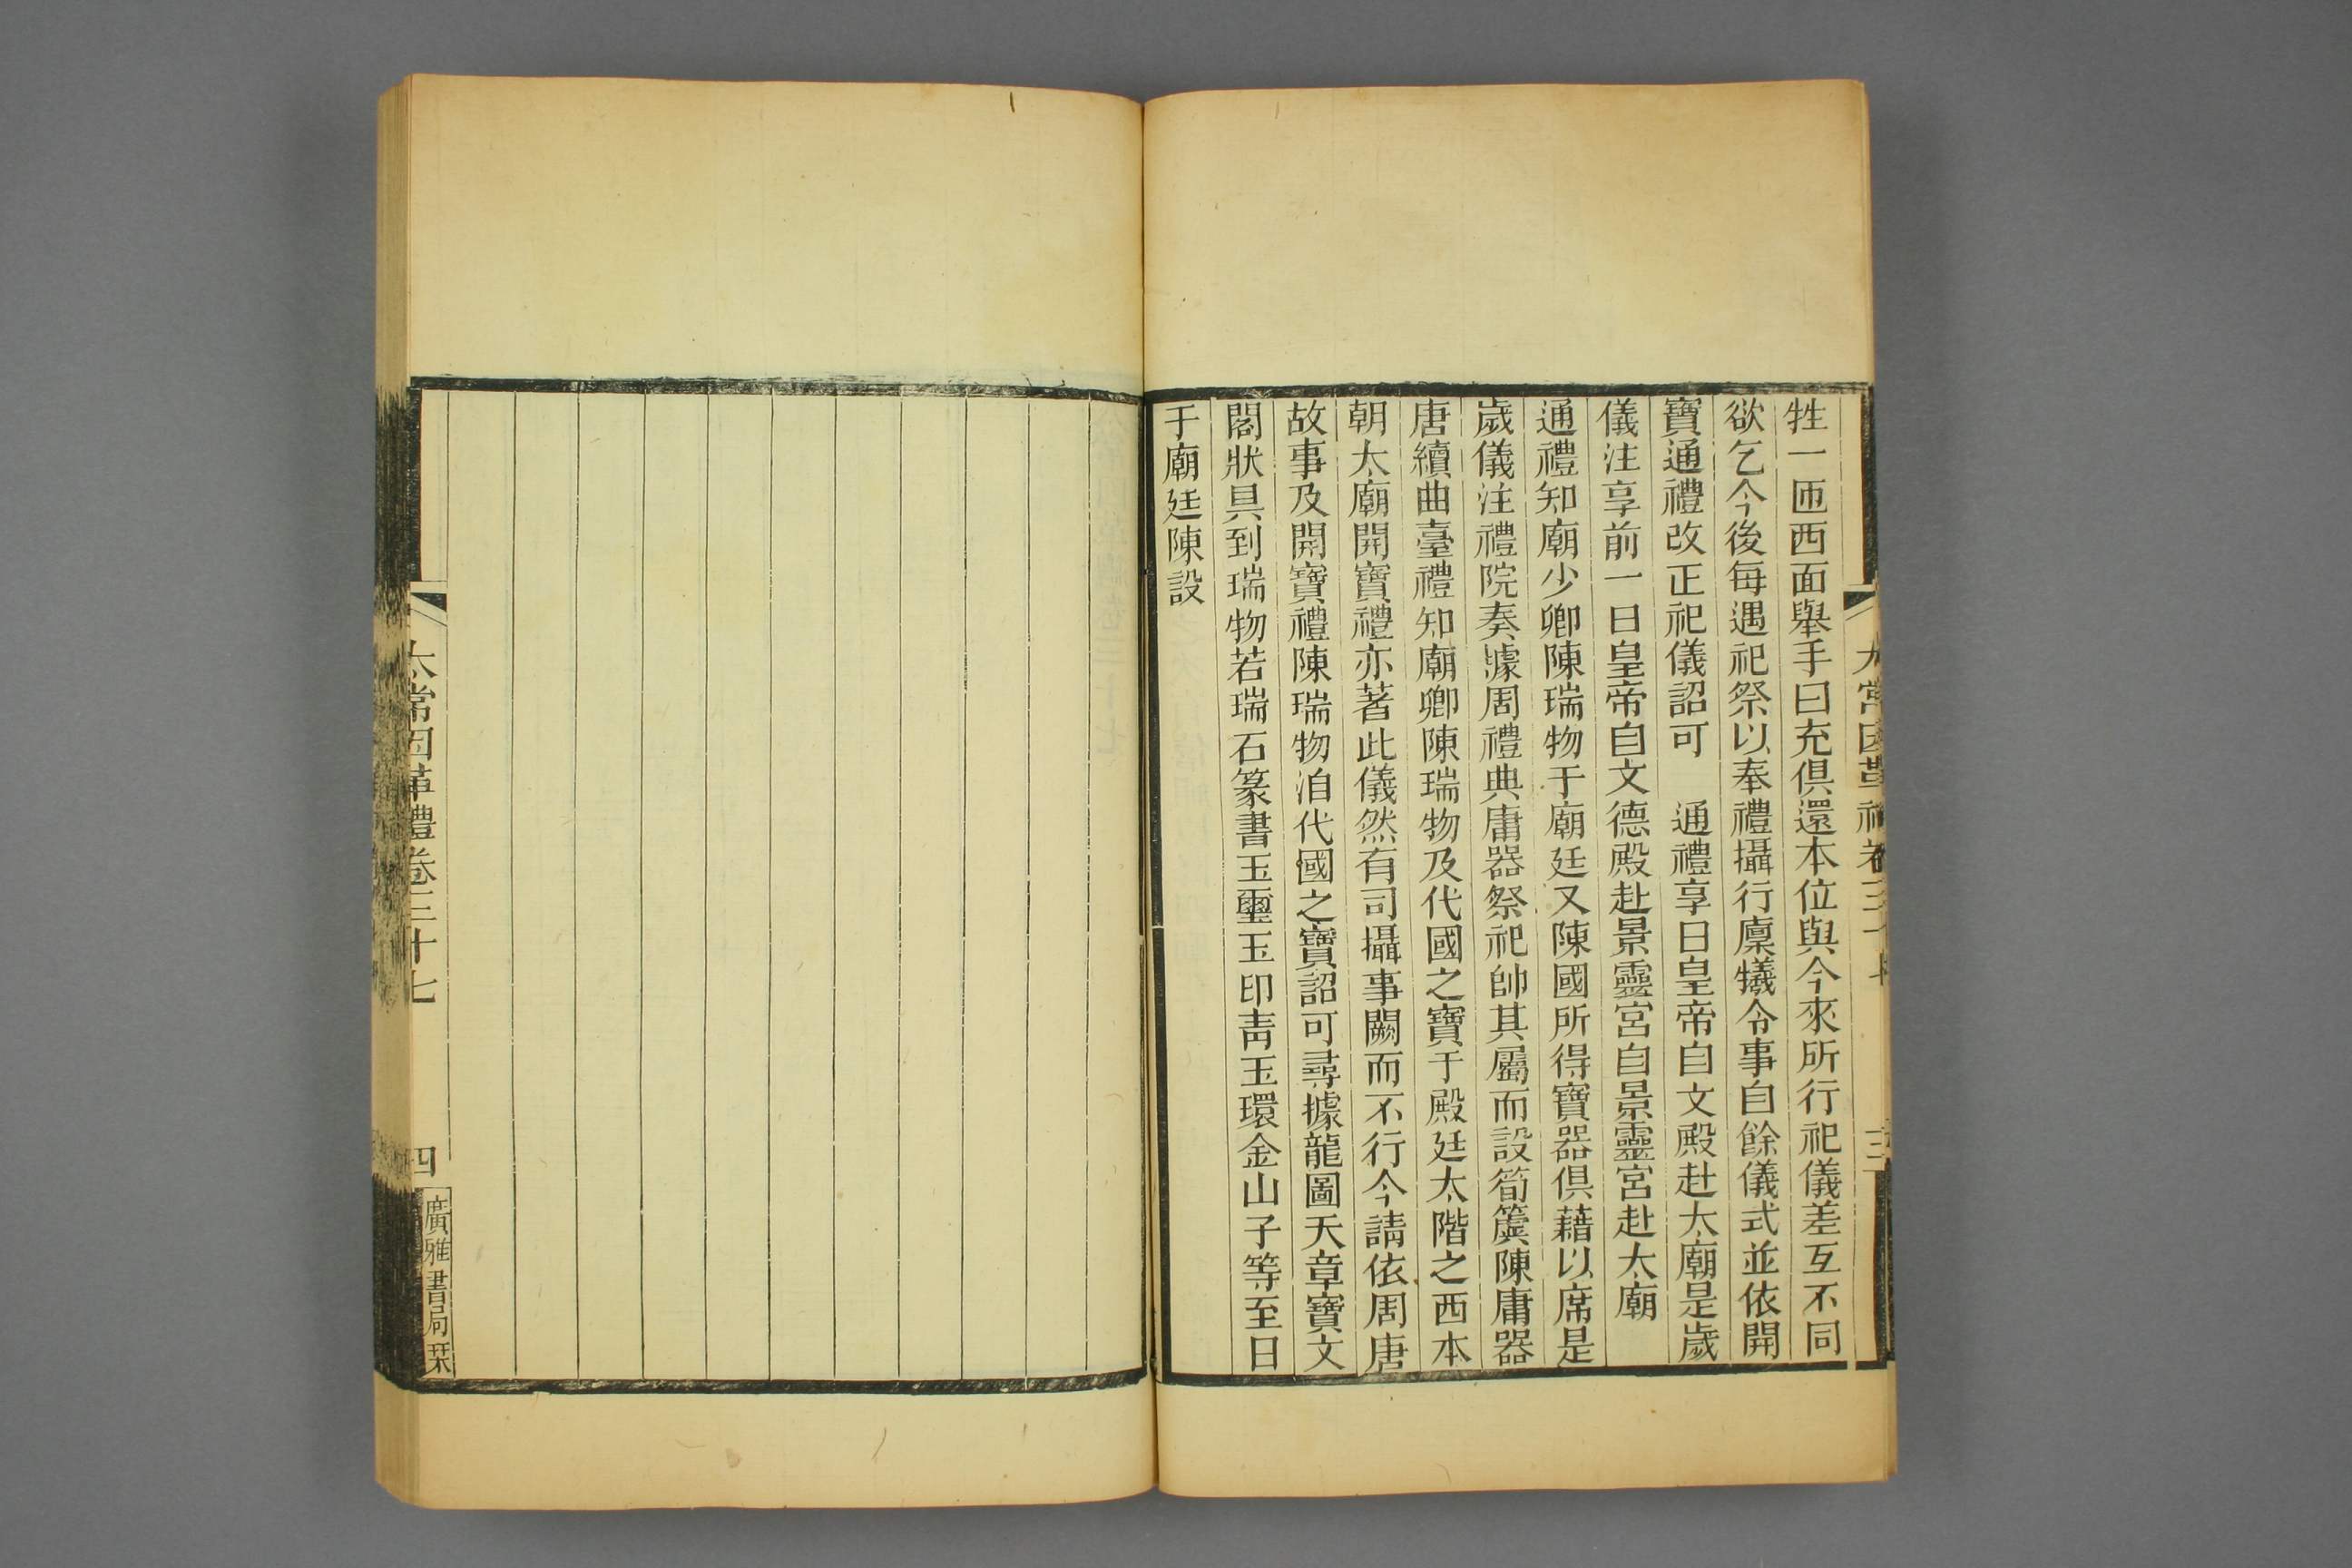 牲一匝西面舉手曰充俱還本位與今來所行祀儀差互不同
欲乞今後每遇祀祭以奉禮攝行廩犧令事自餘儀式並依開
寶通禮改正祀儀詔可　通禮享日皇帝自文殿赴太廟是歲
儀注享前一日皇帝自文德殿赴景靈宮自景靈宮赴太廟
通禮知廟少卿陳瑞物于廟廷又陳國所得寶器俱藉以席是
歲儀注禮院奏據周禮典庸器祭祀帥其屬而設筍簴陳庸器
唐續曲臺禮知廟卿陳瑞物及代國之寶于殿廷太階之西本
朝太廟開寶禮亦著此儀然有司攝事闕而不行今請依周唐
故事及開寶禮陳瑞物洎代國之寶詔可尋據龍圖天章寶文
閣狀具到瑞物若瑞石篆書玉璽玉印青玉環金山子等至日
于廟廷陳設
太常因革禮卷三十七
四
廣雅書局栞